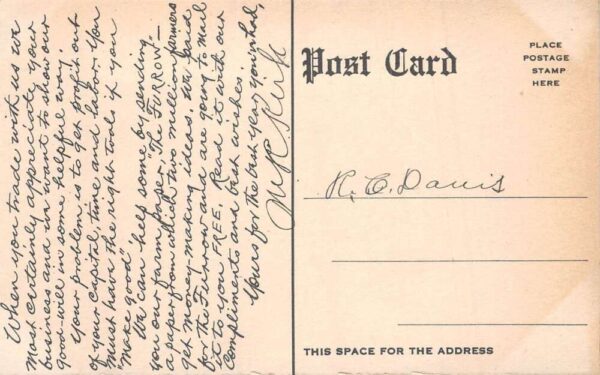 When you trade with us we
most certainly appreciate your
business and we want to show our
good-will in some helpful way.
Your problem is to get profit out
of your capital, time and labor. You
must have the right tools if you
"make good".
We can help some by sending
you our farm paper, "The Furrow"—
a paper from which two million farmers
get money-making ideas. We paid
for the Furrow and are going to mail
it to you FREE. Read it with our
Compliments and best wishes.
Yours for the best year you've had,
Post Card
PLACE
POSTAGE
STAMP
HERE
R. C. Davis
THIS SPACE FOR THE ADDRESS